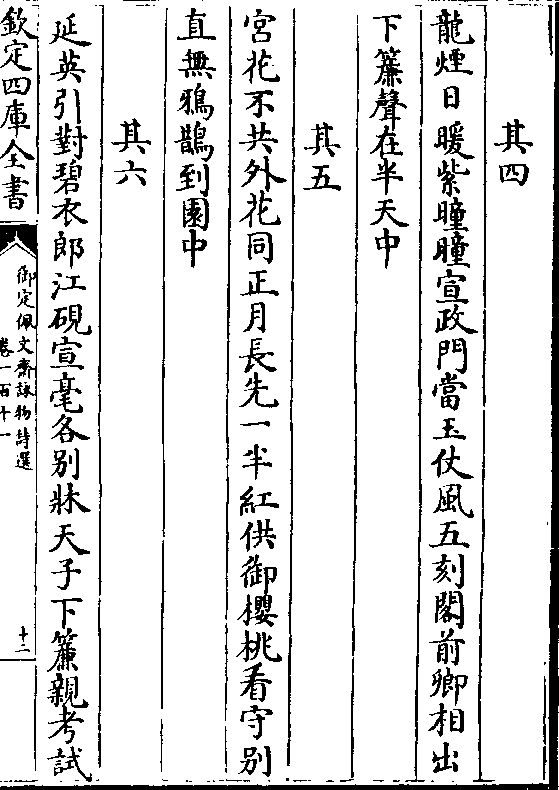 其四
龍煙日暖紫曈曈宣政門當玉仗風五刻閣前卿相出
下簾聲在半天中
其五
宮花不共外花同正月長先一半紅供御櫻桃看守別
直無鴉鵲到園中
其六
延英引對碧衣郎江硯宣毫各别牀天子下簾親考試
欽定四庫全書
御定佩文齋詠物詩選
卷一百十一
十二